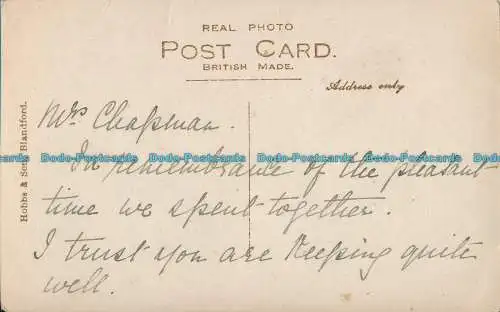 REAL PHOTO
POST CARD.
BRITISH MADE.
Address only
Hobbs & Son, Blandford.
Mrs Chapman.
In remembrance of the pleasant
time we spent together.
I trust you are keeping quite
well.
Postcards Postcards Postcards Postcards Postcards Postcards